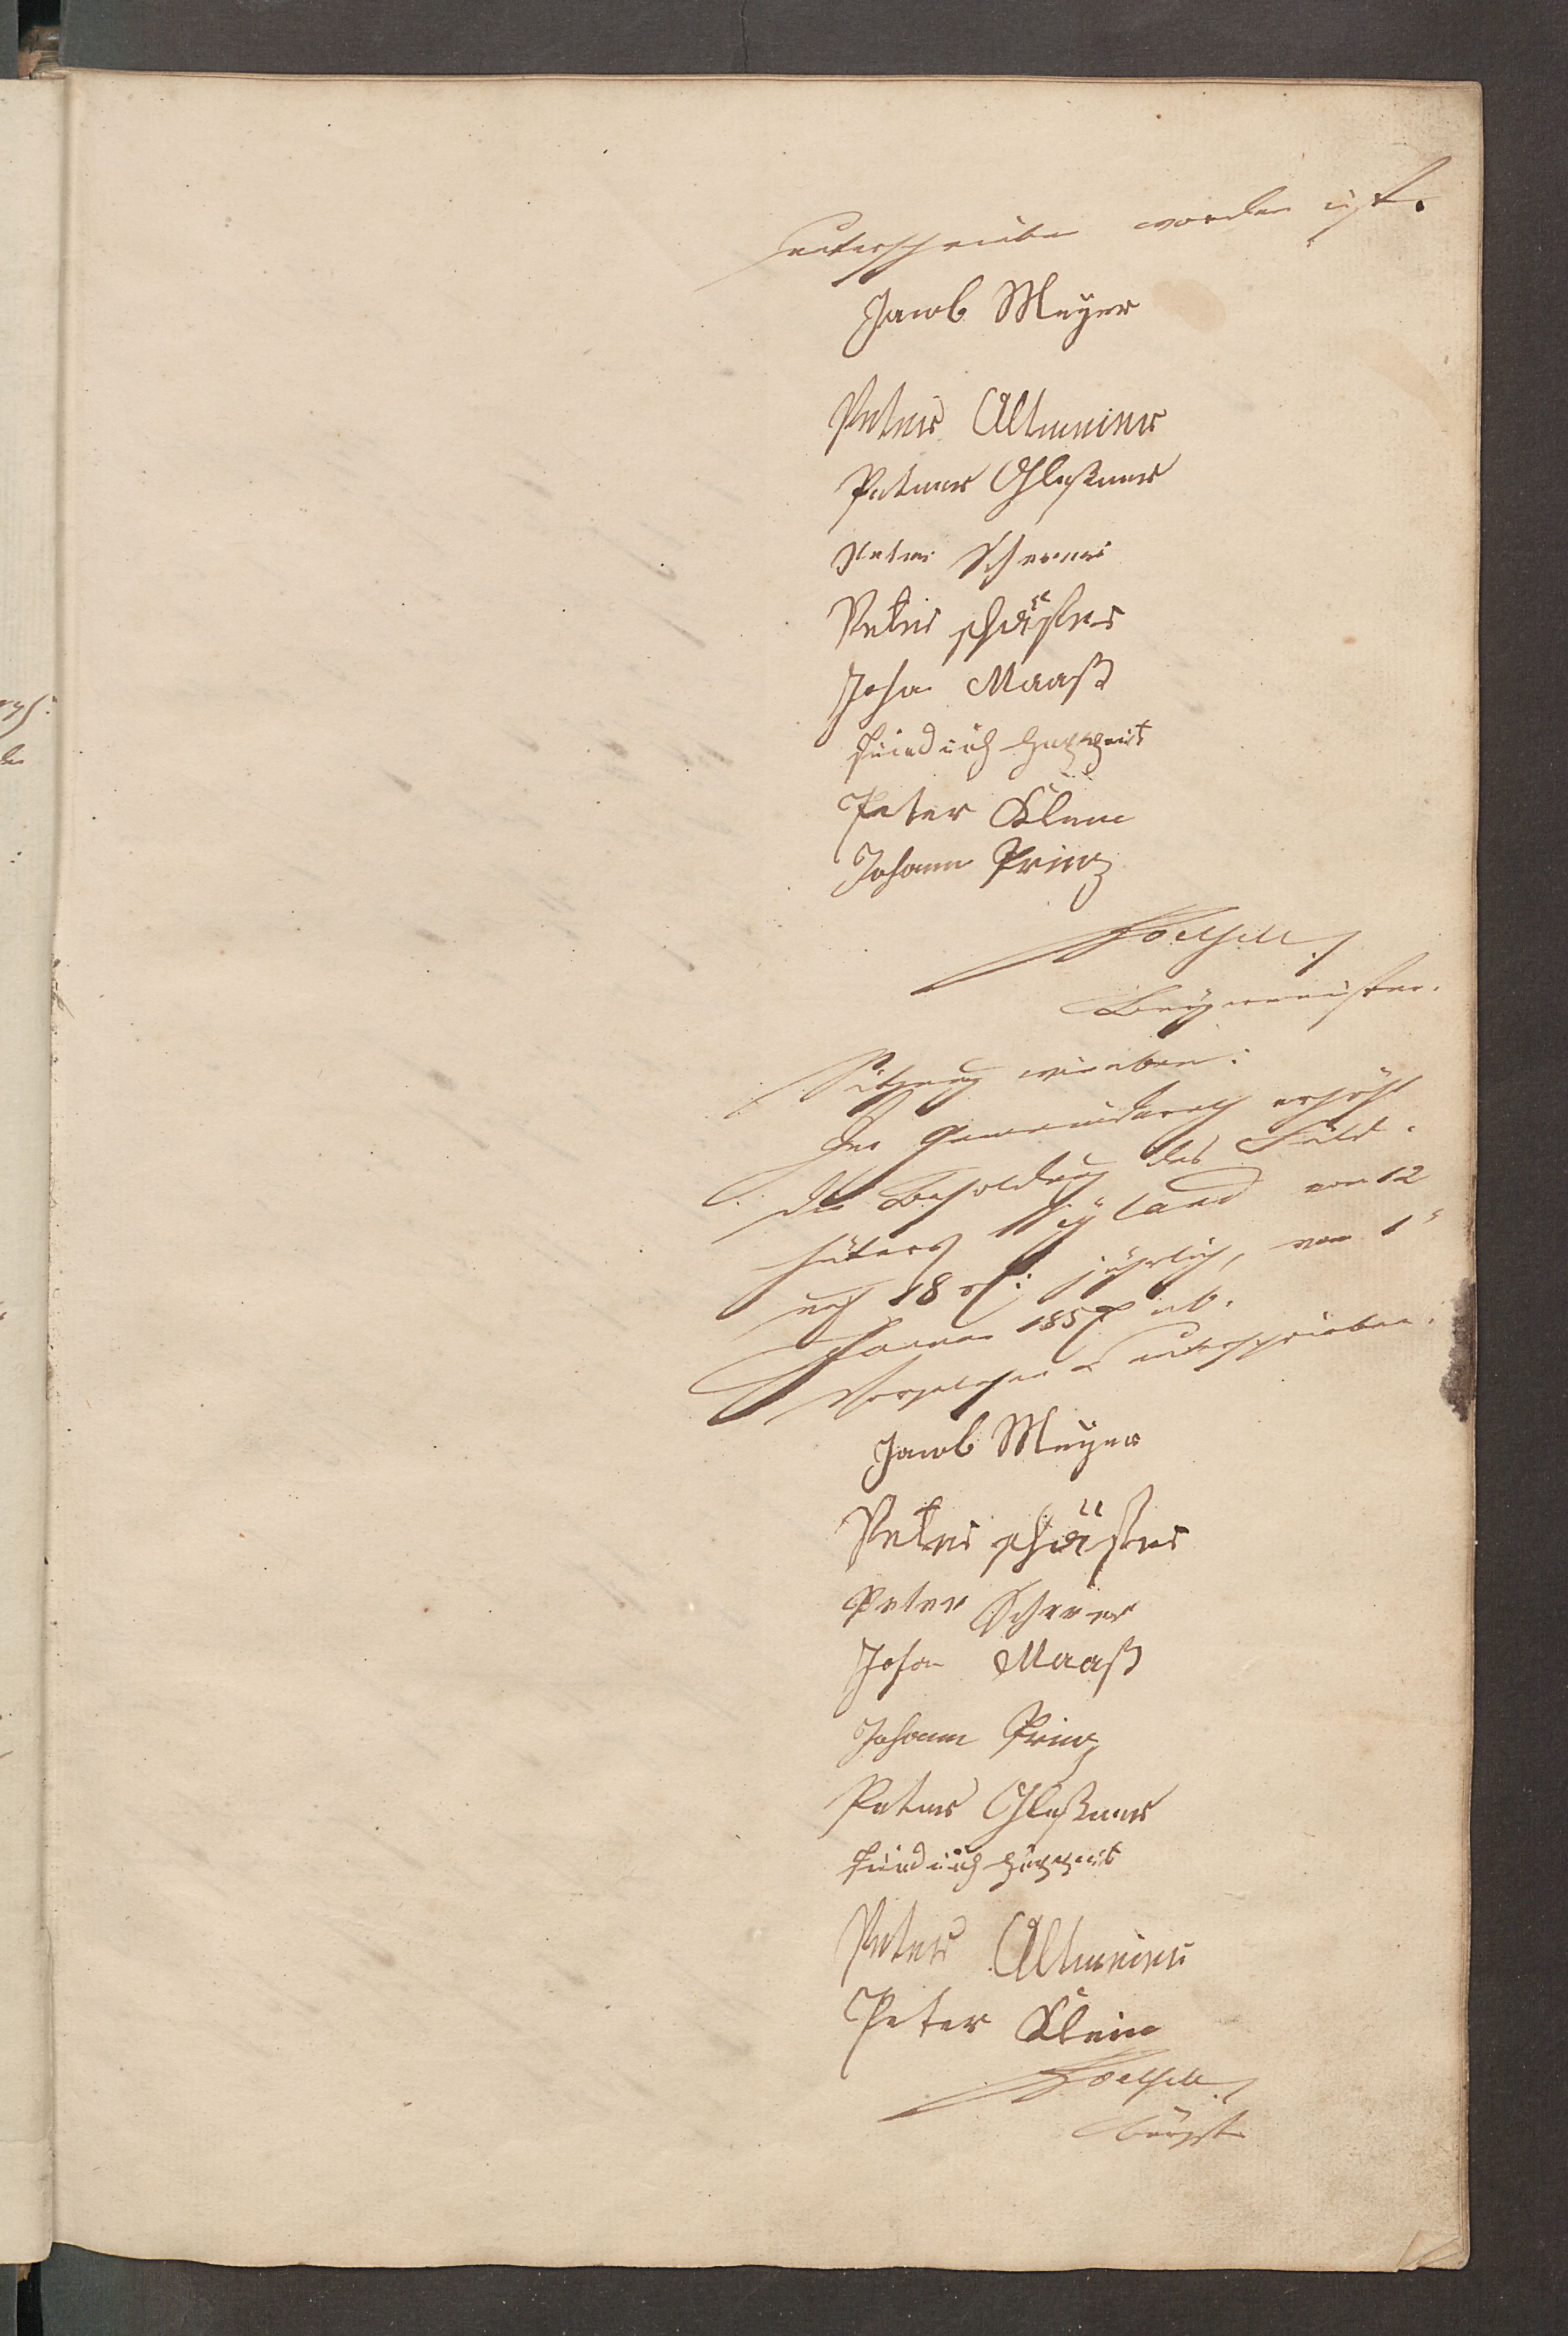 unterschrieben worden ist.
Jacob Meyer
Peter Altmeier
Peter Gleßner
Peter Scherer
Peter Schäfer
Joha Maaß
Friedrich
Peter Klein
Johann Prinz
Bürgermeister.
Sitzung wie oben:
Der Gemeinderath erhöht
die Besoldung des Feld-
hüters Weyland von 12
auf 18 rℓ: jährlich, vom 1"
Januar 1857 ab.
Vorgelesen u unterschrieben.
Jacob Meyer
Peter Schäfer
Peter Scherer
Joha Maaß
Johann Prinz
Peter Gleßner
Friedrich
Peter Altmeier
Peter Klein
Bürgst